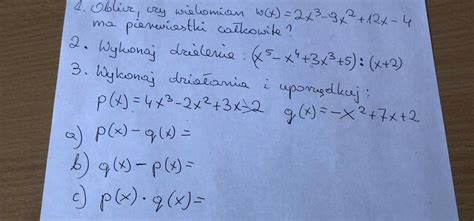 1. Oblicz, czy wielomian w(x)=2x³-9x²+12x-4
ma pierwiastki całkowite?
2. Wykonaj dzielenie: (x⁵-x⁴+3x³+5):(x+2)
3. Wykonaj działania i uporządkuj:
p(x)=4x³-2x²+3x-2 q(x)=-x²+7x+2
a) p(x)-q(x)=
b) q(x)-p(x)=
c) p(x)·q(x)=